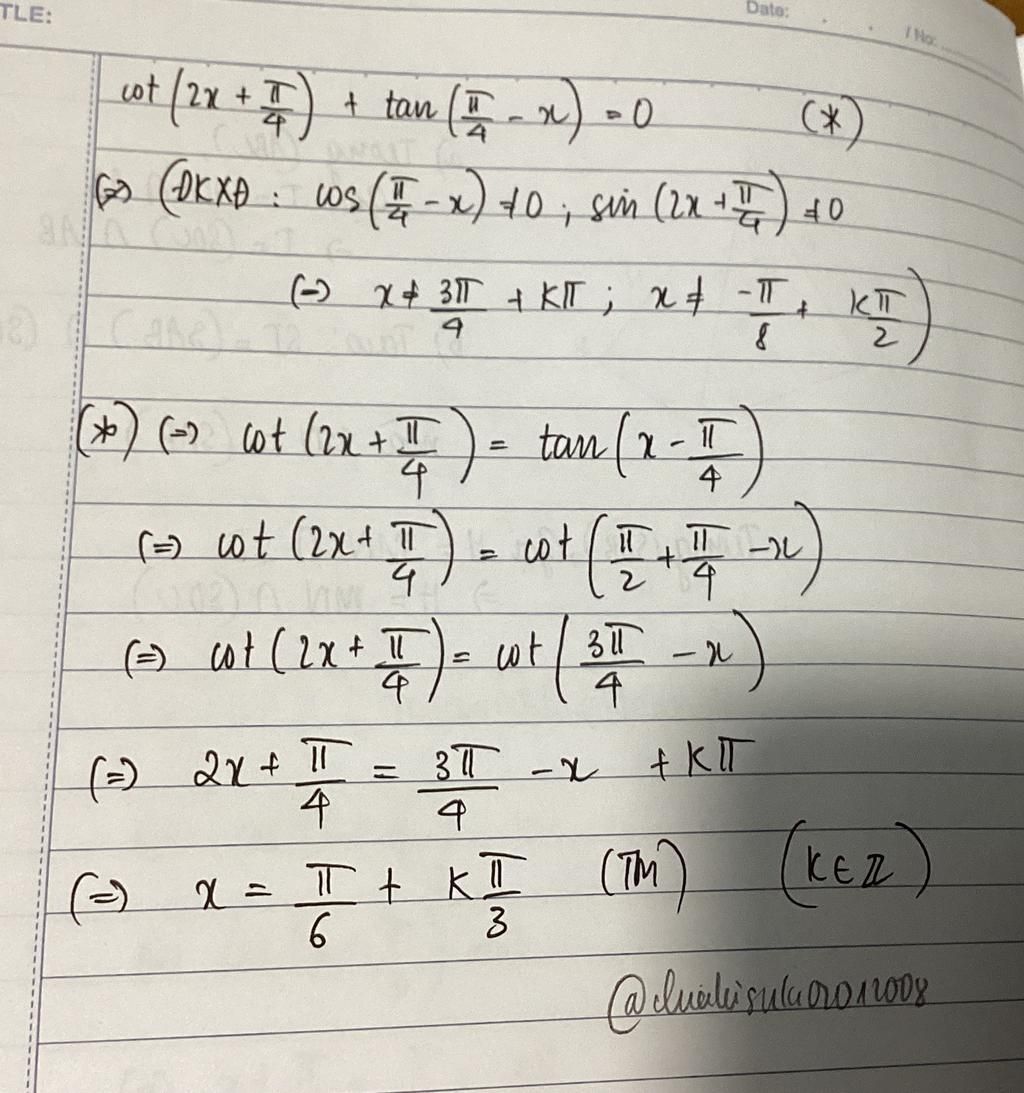 TLE:
Date: . . / No:
cot (2x + π/4) + tan (π/4 - x) = 0 (*)
(=) (ĐKXĐ : cos (π/4 - x) ≠ 0 ; sin (2x + π/4) ≠ 0
(=) x ≠ 3π/4 + Kπ ; x ≠ -π/8 + Kπ/2)
(*) (=) cot (2x + π/4) = tan (x - π/4)
(=) cot (2x + π/4) = cot (π/2 + π/4 - x)
(=) cot (2x + π/4) = cot (3π/4 - x)
(=) 2x + π/4 = 3π/4 - x + Kπ
(=) x = π/6 + K π/3 (TM) (K ∈ Z)